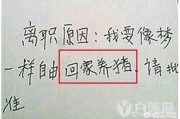 离职原因：我要像梦
一样自由回家养猪，请批
准